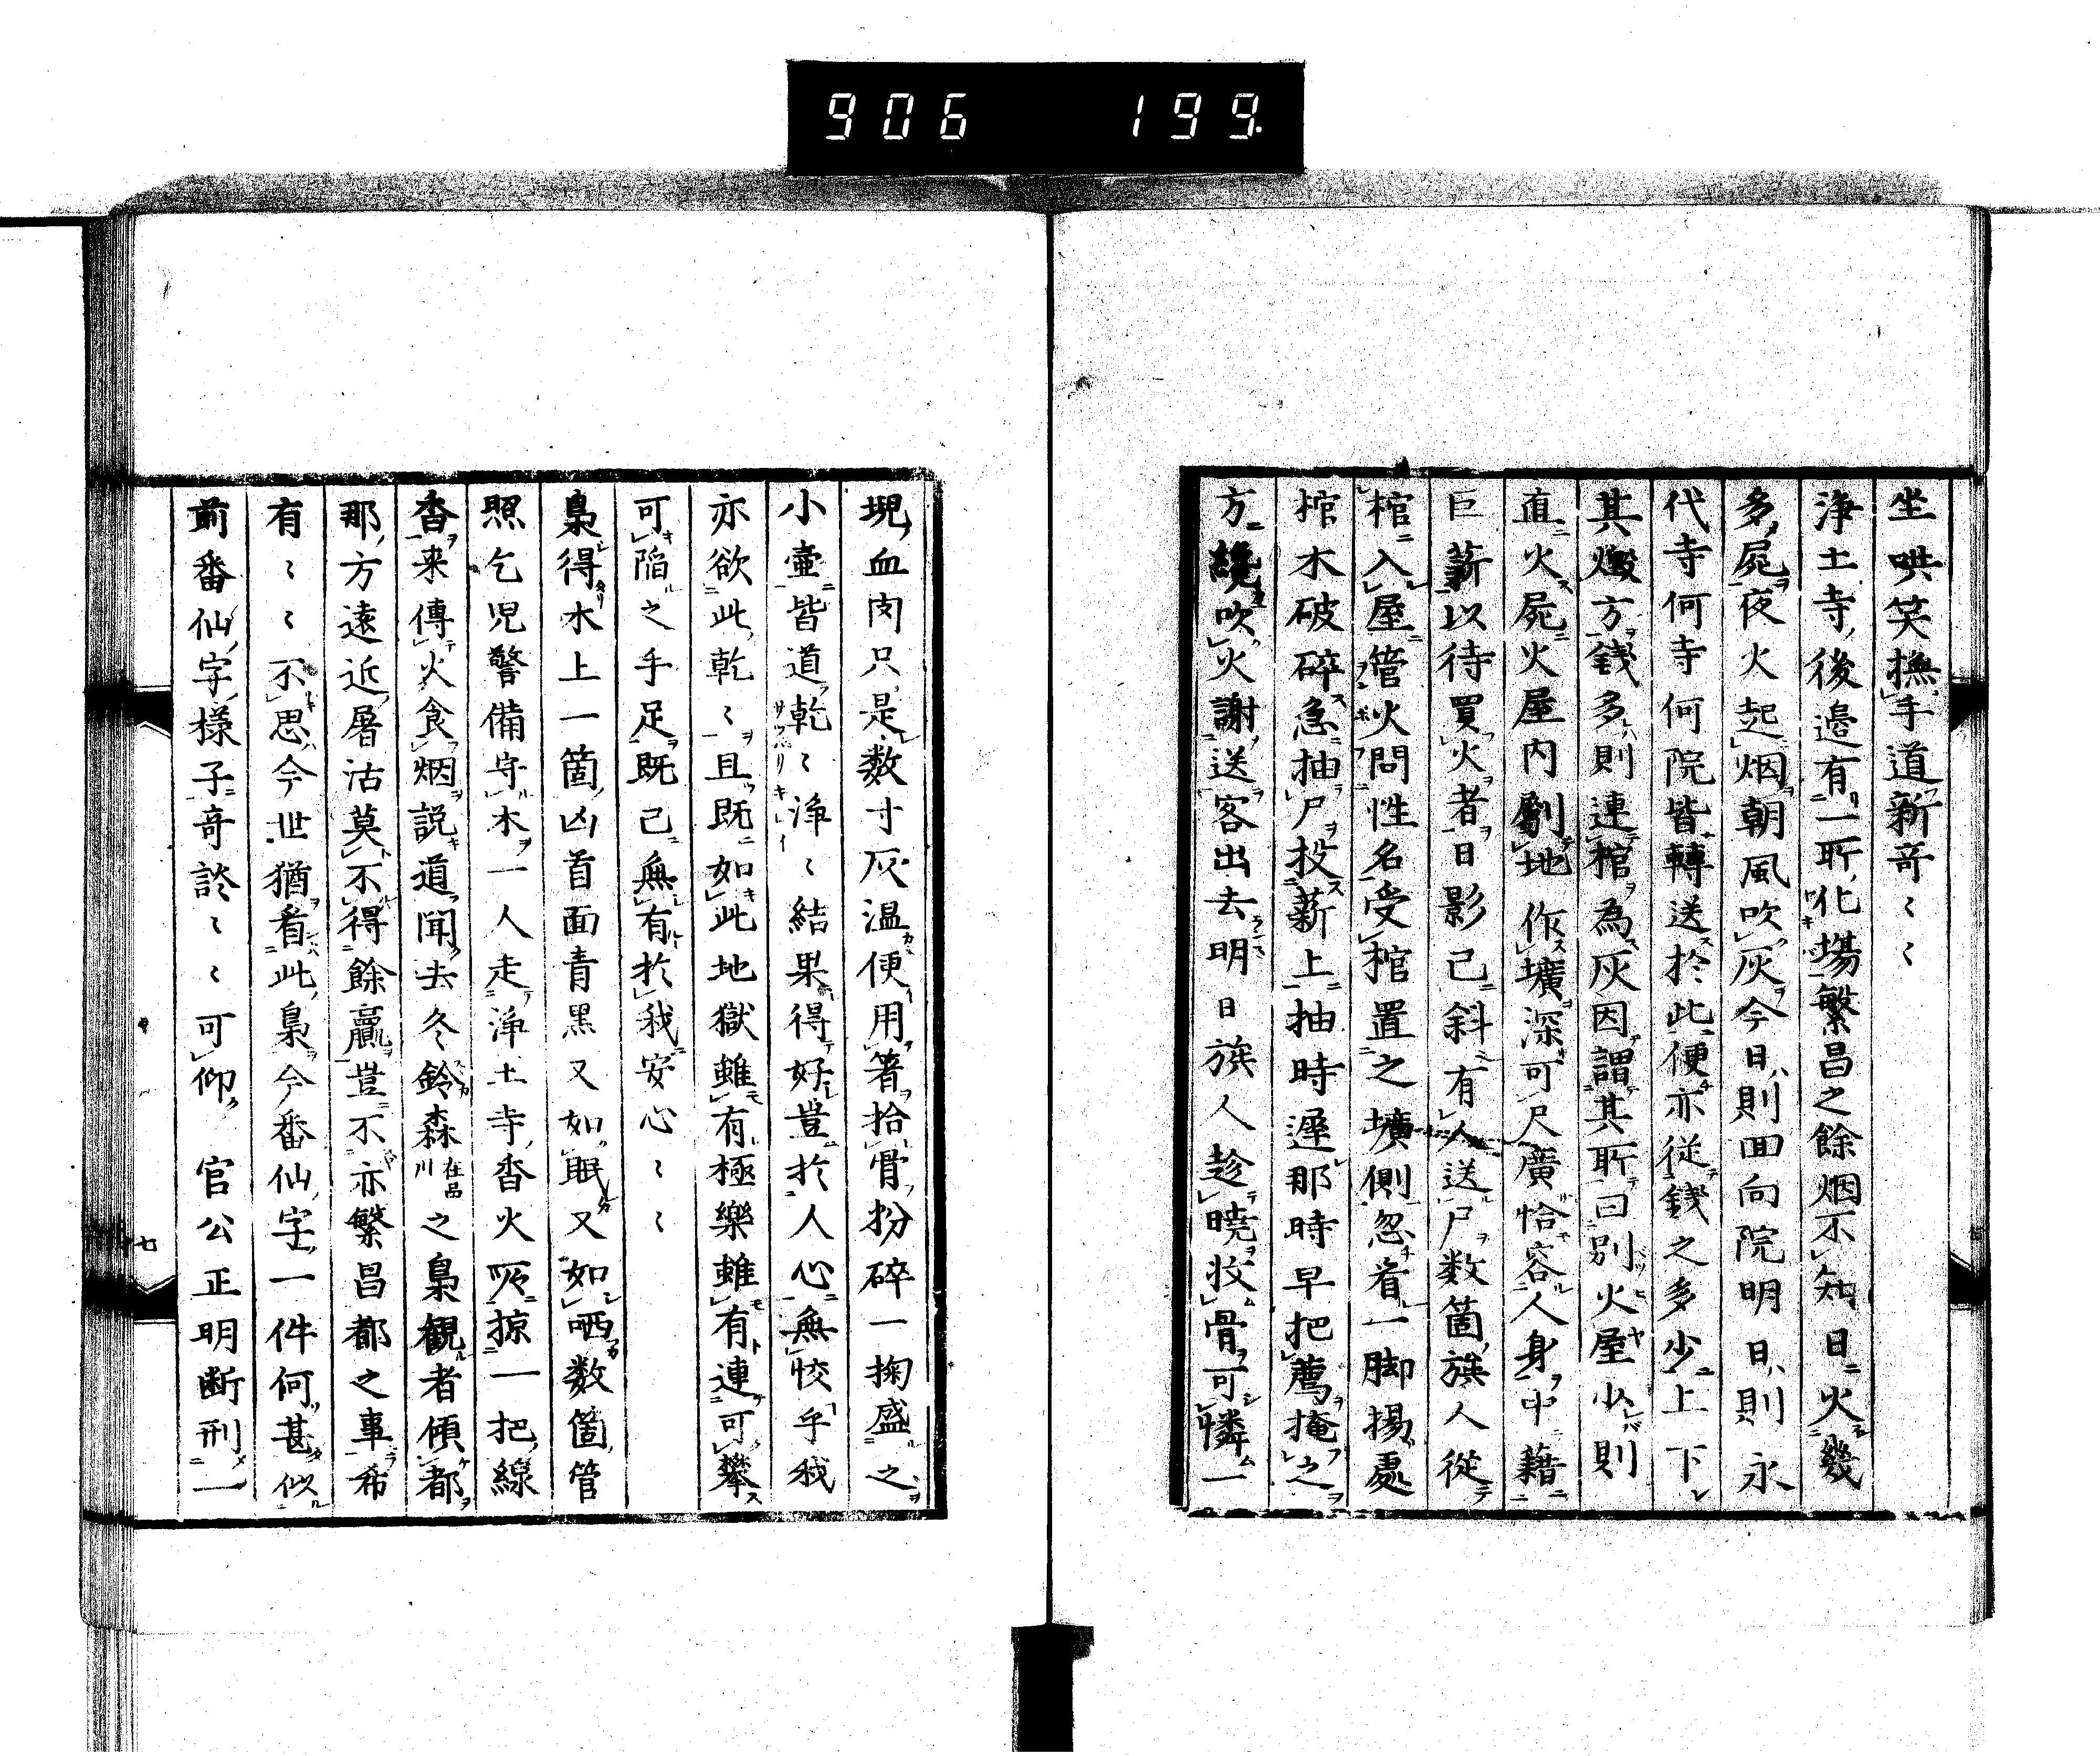 906 199
坐哄笑撫手道新奇〻〻
浄土寺後邉有一所化塲繁昌之餘烟不知日火幾
多屍夜火起烟朝風吹灰今日則回向院明日則永
代寺何寺何院皆轉送於此便亦従銭之多少上下
其燬方銭多則連棺為灰因謂其所曰別火屋少則
直火屍火屋内劚地作壙深可尺廣恰容人身中藉
巨薪以待買火者日影已斜有人送尸数箇族人従
棺入屋管火問性名受棺置之壙側忽看一脚揚處
棺木破碎急抽尸投薪上抽時遲那時早把薦掩之
方纔吹火謝送客出去明日族人趁曉收骨可憐一
塊血肉只是数寸灰温便用箸拾骨扮碎一掬盛之
小壷皆道乾〻浄〻結果得好豈於人心無恔乎我
亦欲此乾〻且既如此地獄雖有極樂雖有連可攀
可陷之手足既已無有於我安心〻〻
梟得木上一箇凶首面青黒又如眠又如哂数箇管
照乞児警備守木一人走浄土寺香火所掠一把線
香来傳火食烟説道聞去冬鈴森在品川之梟観者傾都
那方遠近屠沽莫不得餘贏豈不亦繁昌都之事希
有〻〻不思今世猶看此梟今番仙字一件何甚似
前番仙字様子奇談〻〻可仰官公正明断刑一
七